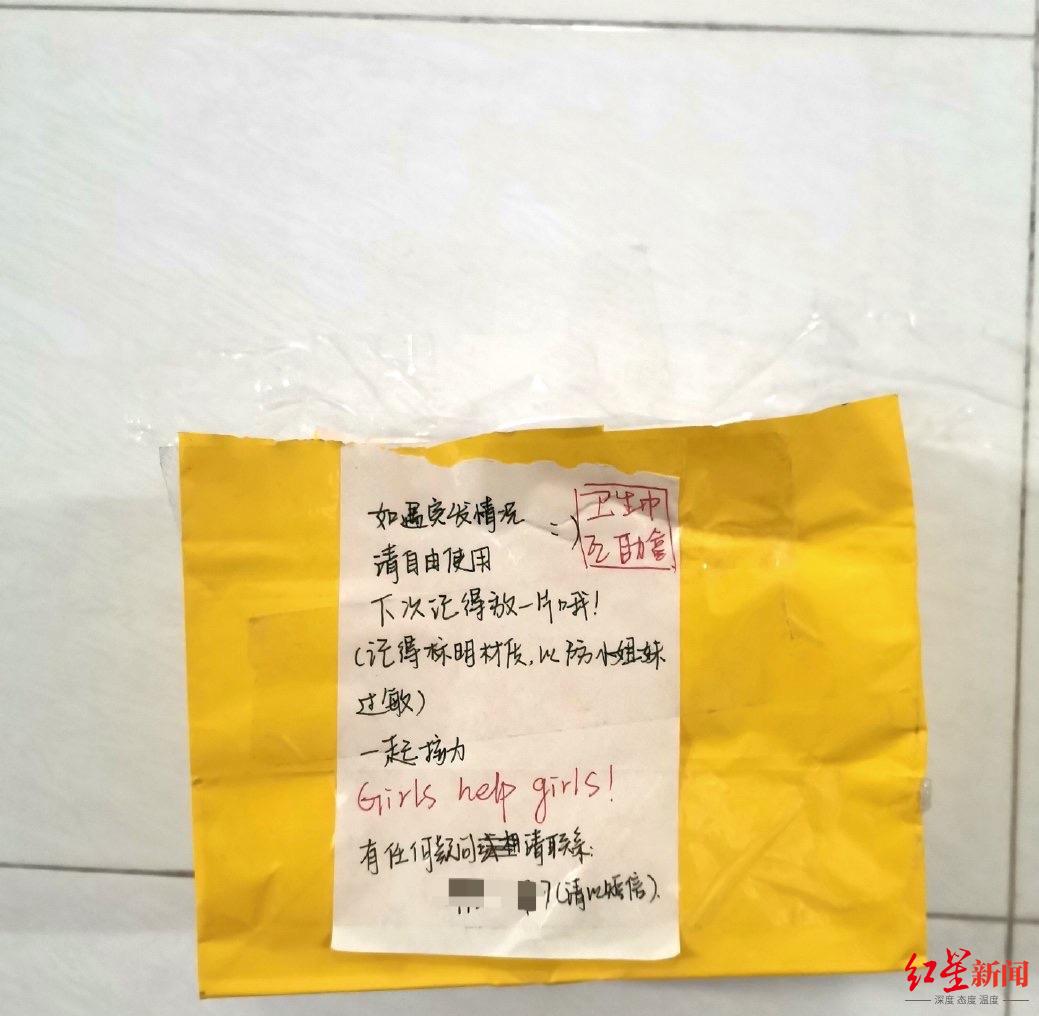 如遇突发情况 =)
卫生巾
互助盒
请自由使用
下次记得放一片哦！
（记得标明材质，以防小姐妹
过敏）
一起接力
Girls help girls!
有任何疑问请联系：
7（请以短信）.
红星新闻
深度 态度 温度